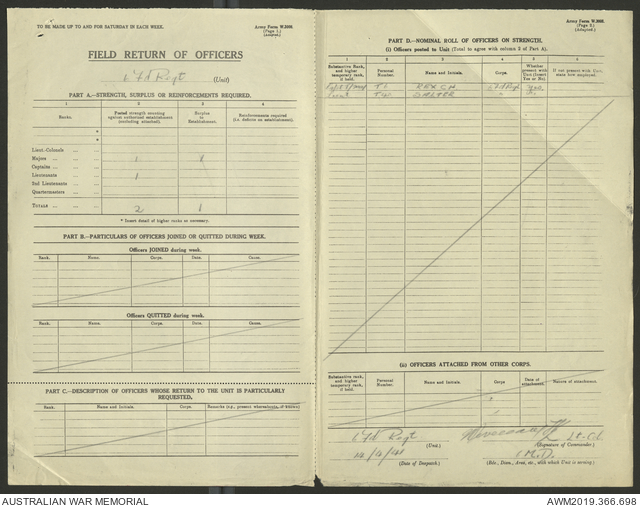 TO BE MADE UP TO AND FOR SATURDAY IN EACH WEEK.
Army Form W.3008.
(Page 1.)
(Adapted.)
FIELD RETURN OF OFFICERS
6 Fd Regt (Unit)
PART A.—STRENGTH, SURPLUS OR REINFORCEMENTS REQUIRED.
1 2 3 4
Ranks. Posted strength counting against authorised establishments (excluding attached). Surplus to Establishment. Reinforcements required (i.e. deficits on establishment).
*
*
Lieut.-Colonels
Majors 1 1
Captains
Lieutenants 1
2nd Lieutenants
Quartermasters
TOTALS 2 1
* Insert detail of higher ranks as necessary.
PART B.—PARTICULARS OF OFFICERS JOINED OR QUITTED DURING WEEK.
Officers JOINED during week.
Rank. Name. Corps. Date. Cause.
Officers QUITTED during week.
Rank. Name. Corps. Date. Cause.
PART C.—DESCRIPTION OF OFFICERS WHOSE RETURN TO THE UNIT IS PARTICULARLY REQUESTED.
Rank. Name and Initials. Corps. Remarks (e.g., present whereabouts, if known)
Army Form W.3008
(Page 2.)
(Adapted.)
PART D.—NOMINAL ROLL OF OFFICERS ON STRENGTH.
(i) Officers posted to Unit (Total to agree with column 2 of Part A).
1 2 3 4 5 6
Substantive Rank, and higher temporary rank, if held. Personal Number. Name and Initials. Corps. Whether present with Unit (Insert Yes or No). If not present with Unit state how employed.
6 Fd Regt Yes
(ii) OFFICERS ATTACHED FROM OTHER CORPS.
Substantive rank, and higher temporary rank, if held. Personal Number. Name and Initials. Corps Date of attachment. Nature of attachment.
6 Fd Regt (Unit.)
Lt-Col
(Signature of Commander.)
/4/41 (Date of Despatch)
1 M.D.
(Bde., Divn., Area, etc., with which Unit is serving.)
AUSTRALIAN WAR MEMORIAL
AWM2019.366.698